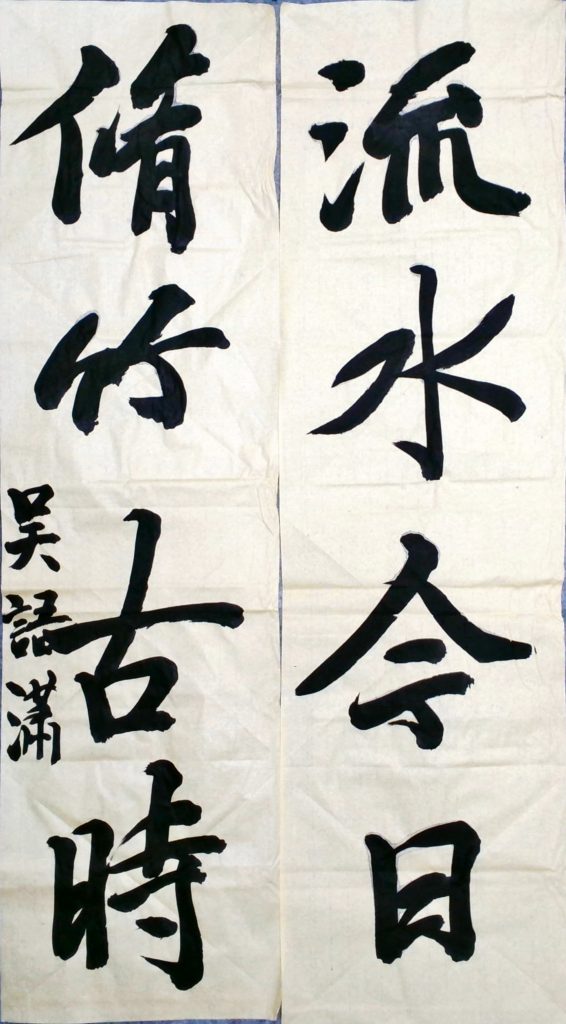 流水今日
脩竹古時
吴語瀟